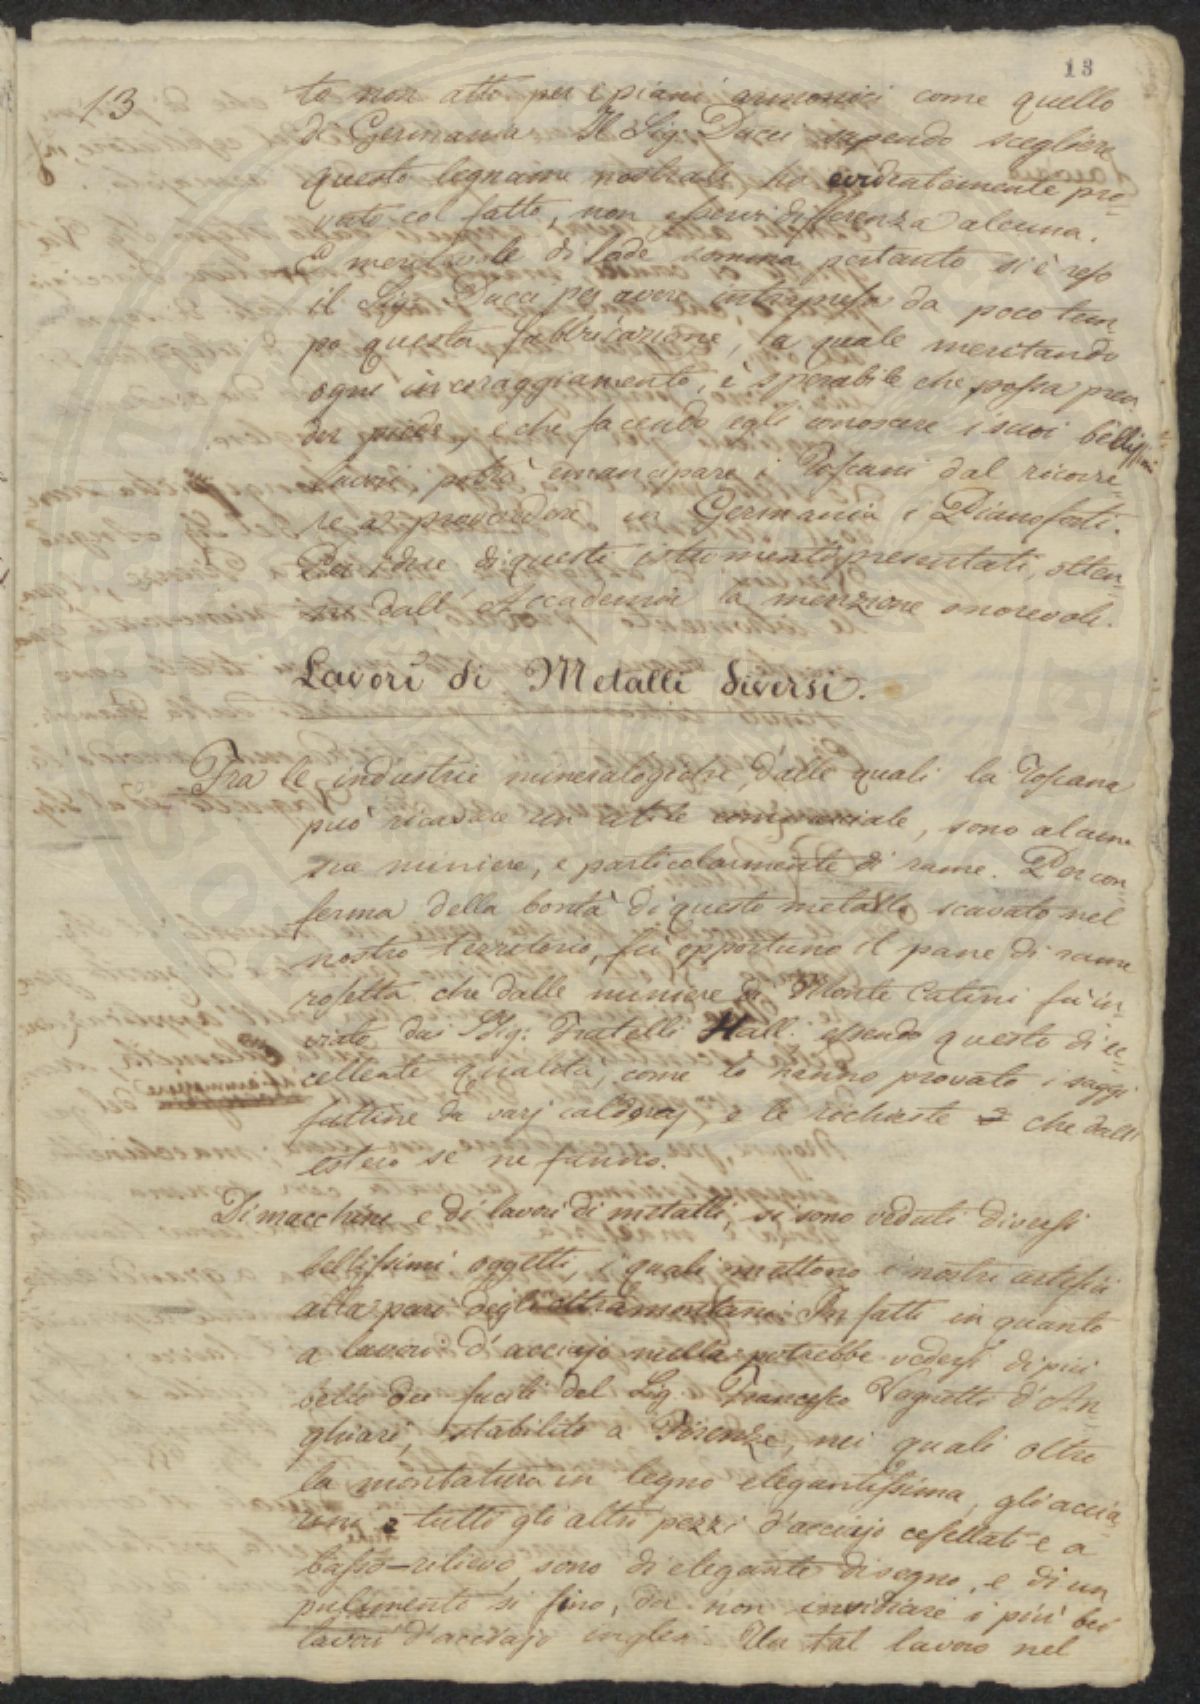 13
13
to non atto per i piani armonici come quello
di Germania. Il Sig. Ducci sapendo scegliere
questo legname nostrale, ha evidentemente pro-
vato col fatto, non esservi differenza alcuna.
E meritevole di lode somma pertanto si è reso
il Sig. Ducci per avere intrapreso da poco tem
po questa fabbricazione, la quale meritando
ogni incoraggiamento, è sperabile che possa pren
der piede, e che facendo egli conoscere i suoi bellissimi
lavori potrà emancipare i Toscani dal ricorre-
re a provvedere in Germania i Pianoforti.
Per due di questi istrumenti presentati, otten-
ne dall' Accademia la menzione onorevole.
Lavori di Metalli diversi.
Fra le industrie mineralogiche, dalle quali la Toscana
può ricavare un utile commerciale, sono alcune
sue miniere, e particolarmente di rame. Per con
ferma della bontà di questo metallo scavato nel
nostro territorio, fu opportuno il pane di rame
rosetta che dalle miniere di Monte Catini fu in-
viato dai Sig: Fratelli Hall: essendo questo di ec-
cellente qualità, come lo hanno provato i saggi
fattine da varj calderaj, e le richieste che dall'
estero se ne fanno.
Di macchine e di lavori di metalli, si sono veduti diversi
bellissimi oggetti, i quali mettono i nostri artefici
alla pari degli oltramontani. In fatti in quanto
a lavori d' acciajo nulla potrebbe vedersi di più
bello dei fucili del Sig. Francesco Vagnetti d' An-
ghiari, stabilito a Firenze, nei quali oltre
la montatura in legno elegantissima, gli accia-
rini e tutti gli altri pezzi d'acciajo cesellati e a
basso-rilievo, sono di elegante disegno, e di un
pulimento si fino, da non invidiare i più bei
lavori d'acciajo inglesi. Un tal lavoro nel